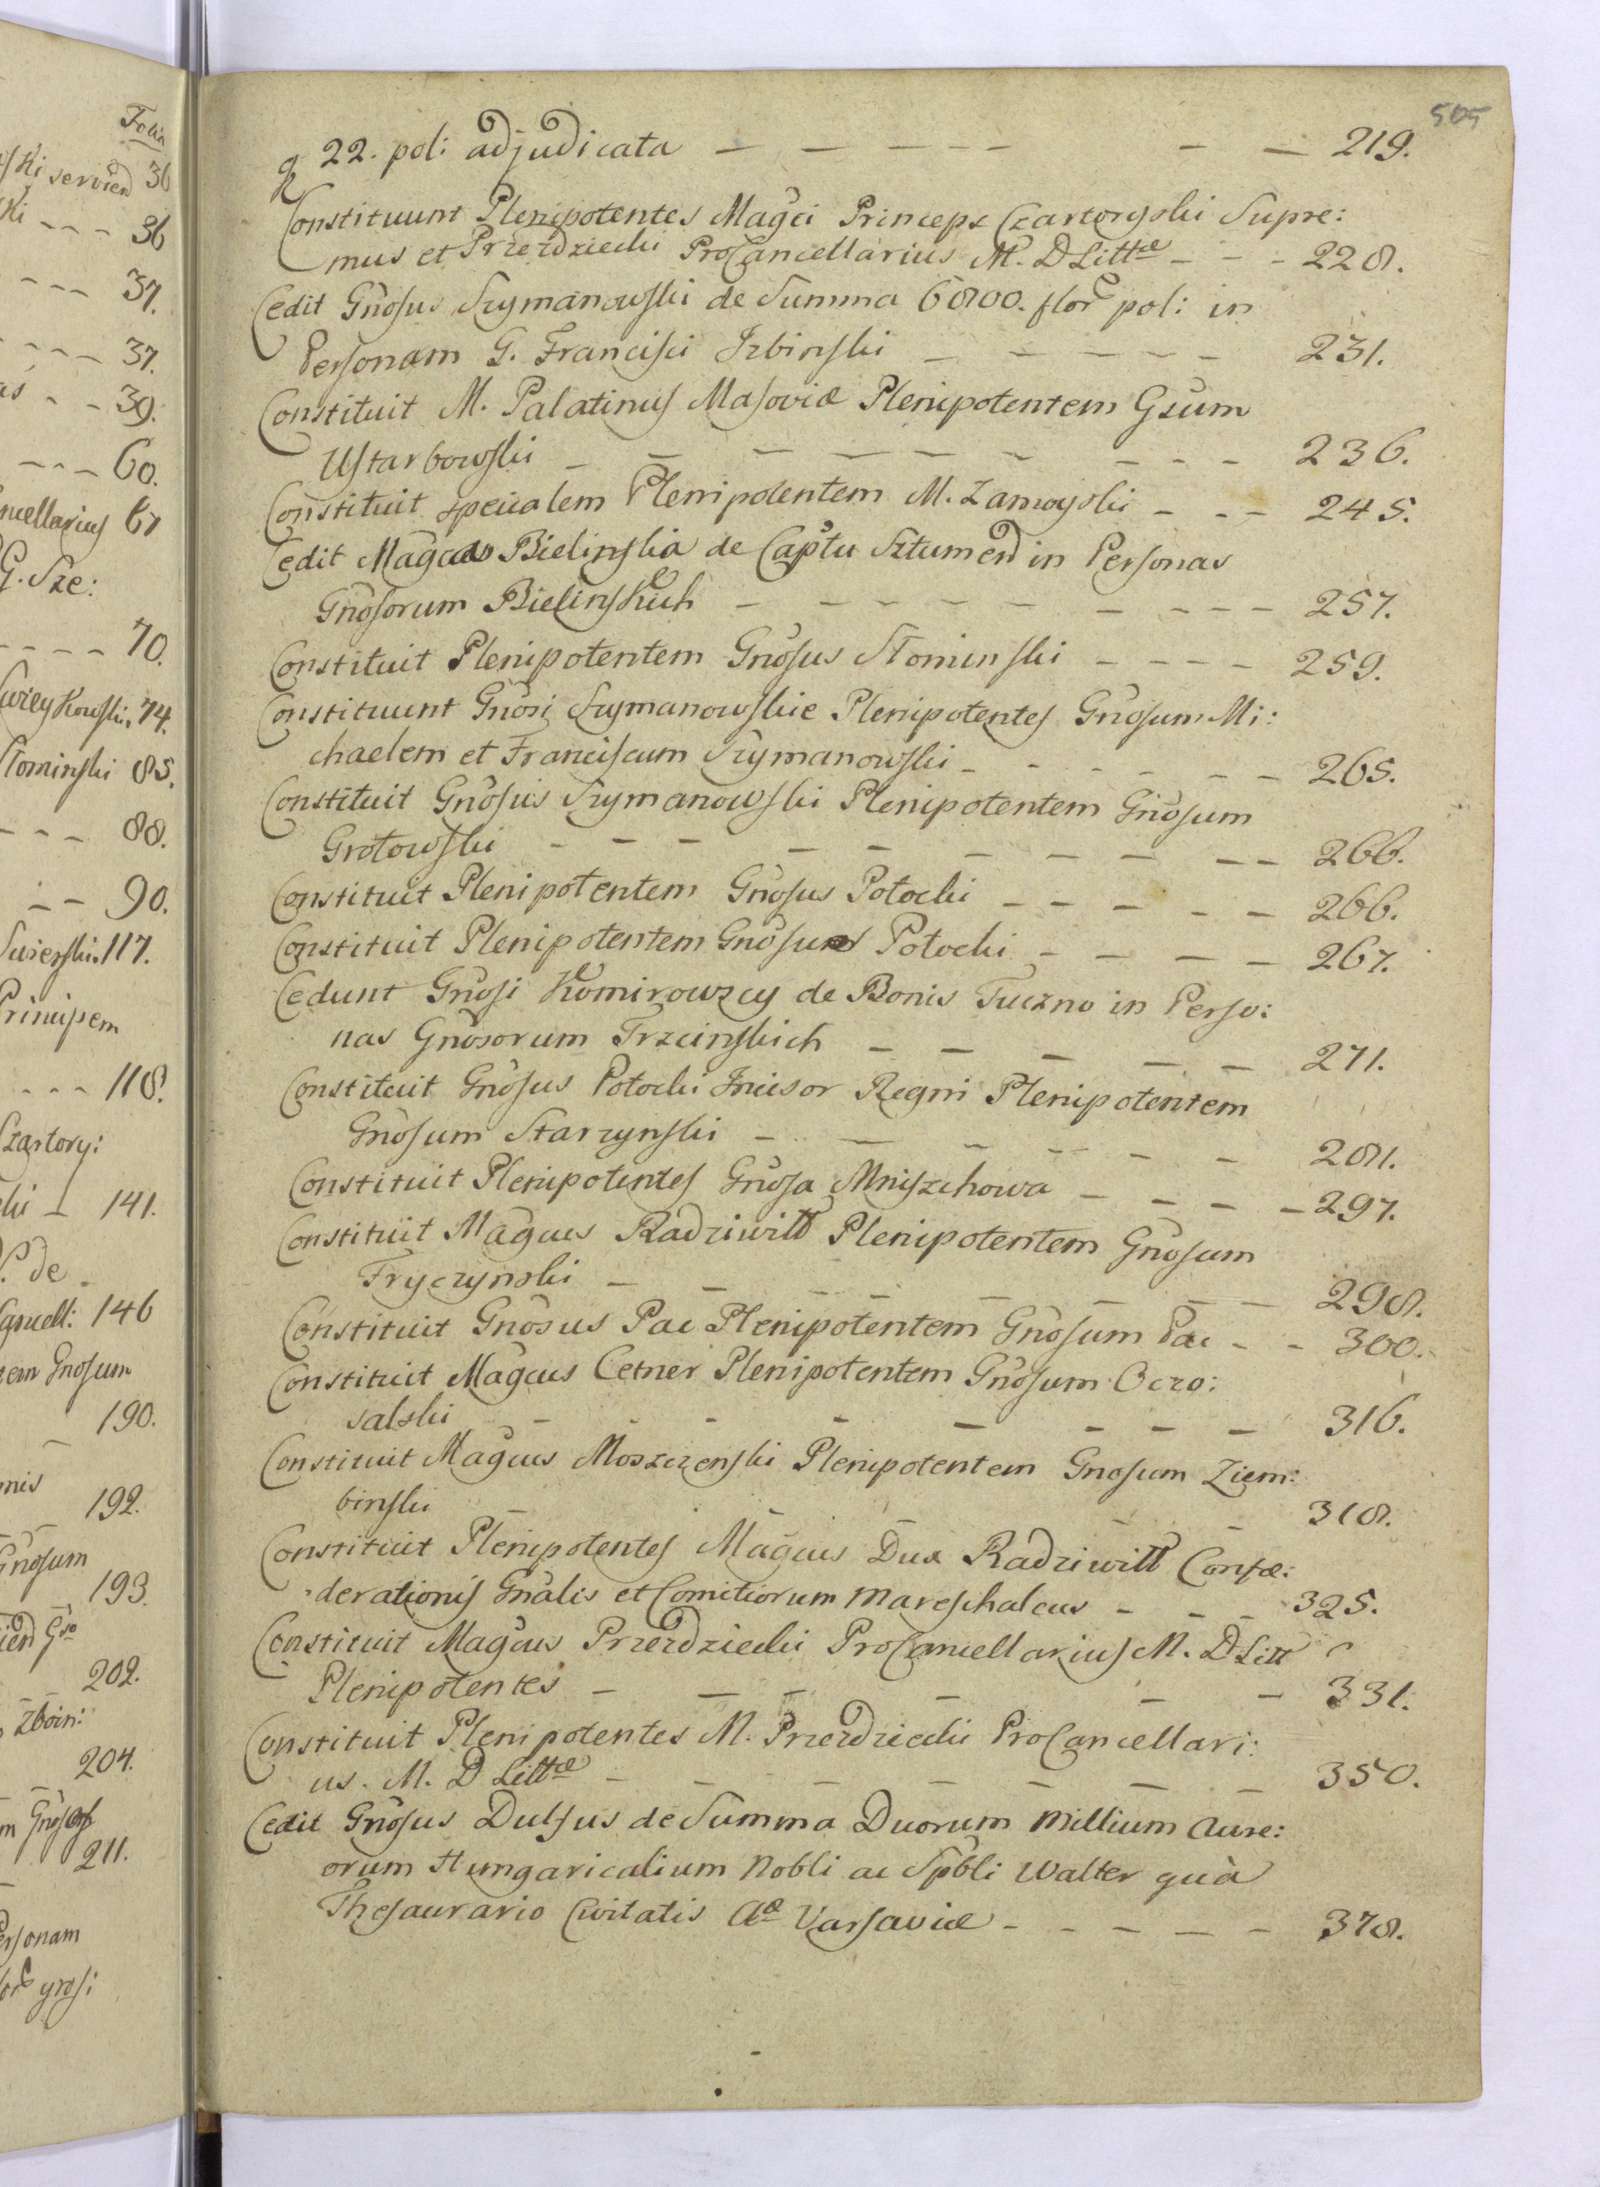 Folia
ski serviend 36
ki - - - 36
- - - 37.
- - - - 37.
- - 39.
- - - 60.
ncellarius 67
G. Sze:
- - - - 70.
74.
Słominski 85.
- - - 88.
- - - 90.
117.
Principem
- - - 118.
Czartory:
cki - 141.
de
Cancell: 146
tem Gnosum
190.
192.
Gnosum
193.
202.
Zboin:
204.
211.
Personam
grosi
505
22. pol: adjudicata — — — — — — — 219.
Constituunt Plenipotentes Magci Princeps Czartoryski Supre:
mus et Przezdziecki ProCancellarius M. D Littæ - - - 228.
Cedit Gnosus Szymanowski de Summa 6800. flor pol: in
Personam G. Francisci Izbinski — — — — — 231.
Constituit M. Palatinus Masoviæ Plenipotentem Gsum
Ustarbowski — — — — — - - - 236.
Constituit specialem Plenipotentem M. Zamoyski - - - 245.
Cedit Magca Bielinska de Captu Sztumen in Personas
Gnosorum Bielinskich — — — — — — - - - 257.
Constituit Plenipotentem Gnosus Słominski - - - - 259.
Constituunt Gnosi Szymanowskie Plenipotentes Gnosum Mi:
chaelem et Franciscum Szymanowski - - - - - - 265.
Constituit Gnosus Szymanowski Plenipotentem Gnosum
Grotowski - - - - - - - - - - 266.
Constituit Plenipotentem Gnosus Potocki - - - - - 266.
Constituit Plenipotentem Gnosus Potocki - - - - 267.
Cedunt Gnosi Komirowscy de Bonis Tuczno in Perso:
nas Gnosorum Trzcinskich — — — — — 271.
Constituit Gnosus Potocki Incisor Regni Plenipotentem
Gnosum Starzynski - - - - - - 281.
Constituit Plenipotentes Gnosa Mniszchowa - - - - 297.
Constituit Magcus Radziwiłł Plenipotentem Gnosum
Fryczynski - - - - - - - - 298.
Constituit Gnosus Pac Plenipotentem Gnosum Pac - - 300.
Constituit Magcus Cetner Plenipotentem Gnosum Oczo:
salski - - - - - - - - 316.
Constituit Magcus Moszczenski Plenipotentem Gnosum Ziem:
binski - - - - - 318.
Constituit Plenipotentes Magcus Dux Radziwiłł Confæ:
derationis Gnalis et Comitiorum Mareschalcus - - - 325.
Constituit Magcus Przezdziecki ProCancellarius M. D Litt
Plenipotentes - - - - - - 331.
Constituit Plenipotentes M. Przezdziecki ProCancellari:
us. M. D Littæ - - - - - - - - 350.
Cedit Gnosus Dulfus de Summa Duorum Millium Aure:
orum Hungaricalium Nobli ac Spbli Walter quà
Thesaurario Civitatis Aæ Varsaviæ - - - - - 378.